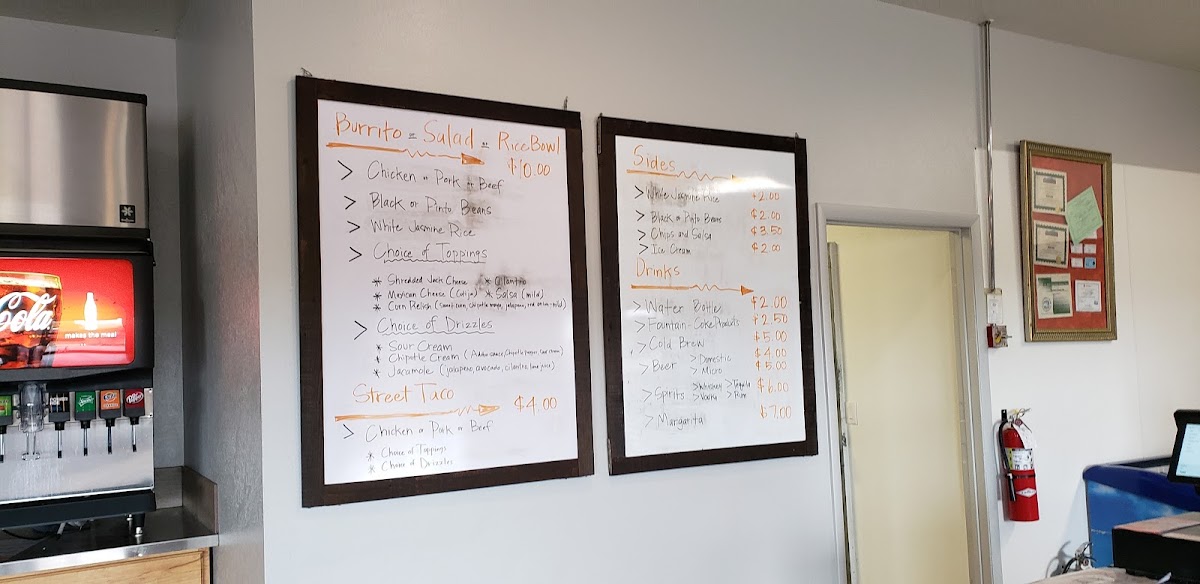 Coca-Cola
makes the meal
Burrito or Salad or Rice Bowl
$10.00
> Chicken or Pork or Beef
> Black or Pinto Beans
> White Jasmine Rice
> Choice of Toppings
* Shredded Jack Cheese * Cilantro
* Mexican Cheese (Cotija) * Salsa (mild)
* Corn Relish
> Choice of Drizzles
* Sour Cream
* Chipotle Cream (Adobo sauce, chipotle pepper, sour cream)
* Jacamole (jalapeno, avocado, cilantro, lime juice)
Street Taco
$4.00
> Chicken or Pork or Beef
* Choice of Toppings
* Choice of Drizzles
Sides
> White Jasmine Rice $2.00
> Black or Pinto Beans $2.00
> Chips and Salsa $3.50
> Ice Cream $2.00
Drinks
> Water Bottles $2.00
> Fountain - Coke Products $2.50
> Cold Brew $5.00
> Beer > Domestic $4.00
> Micro $5.00
> Spirits > Whiskey > Tequila $6.00
> Vodka > Rum
> Margarita $7.00